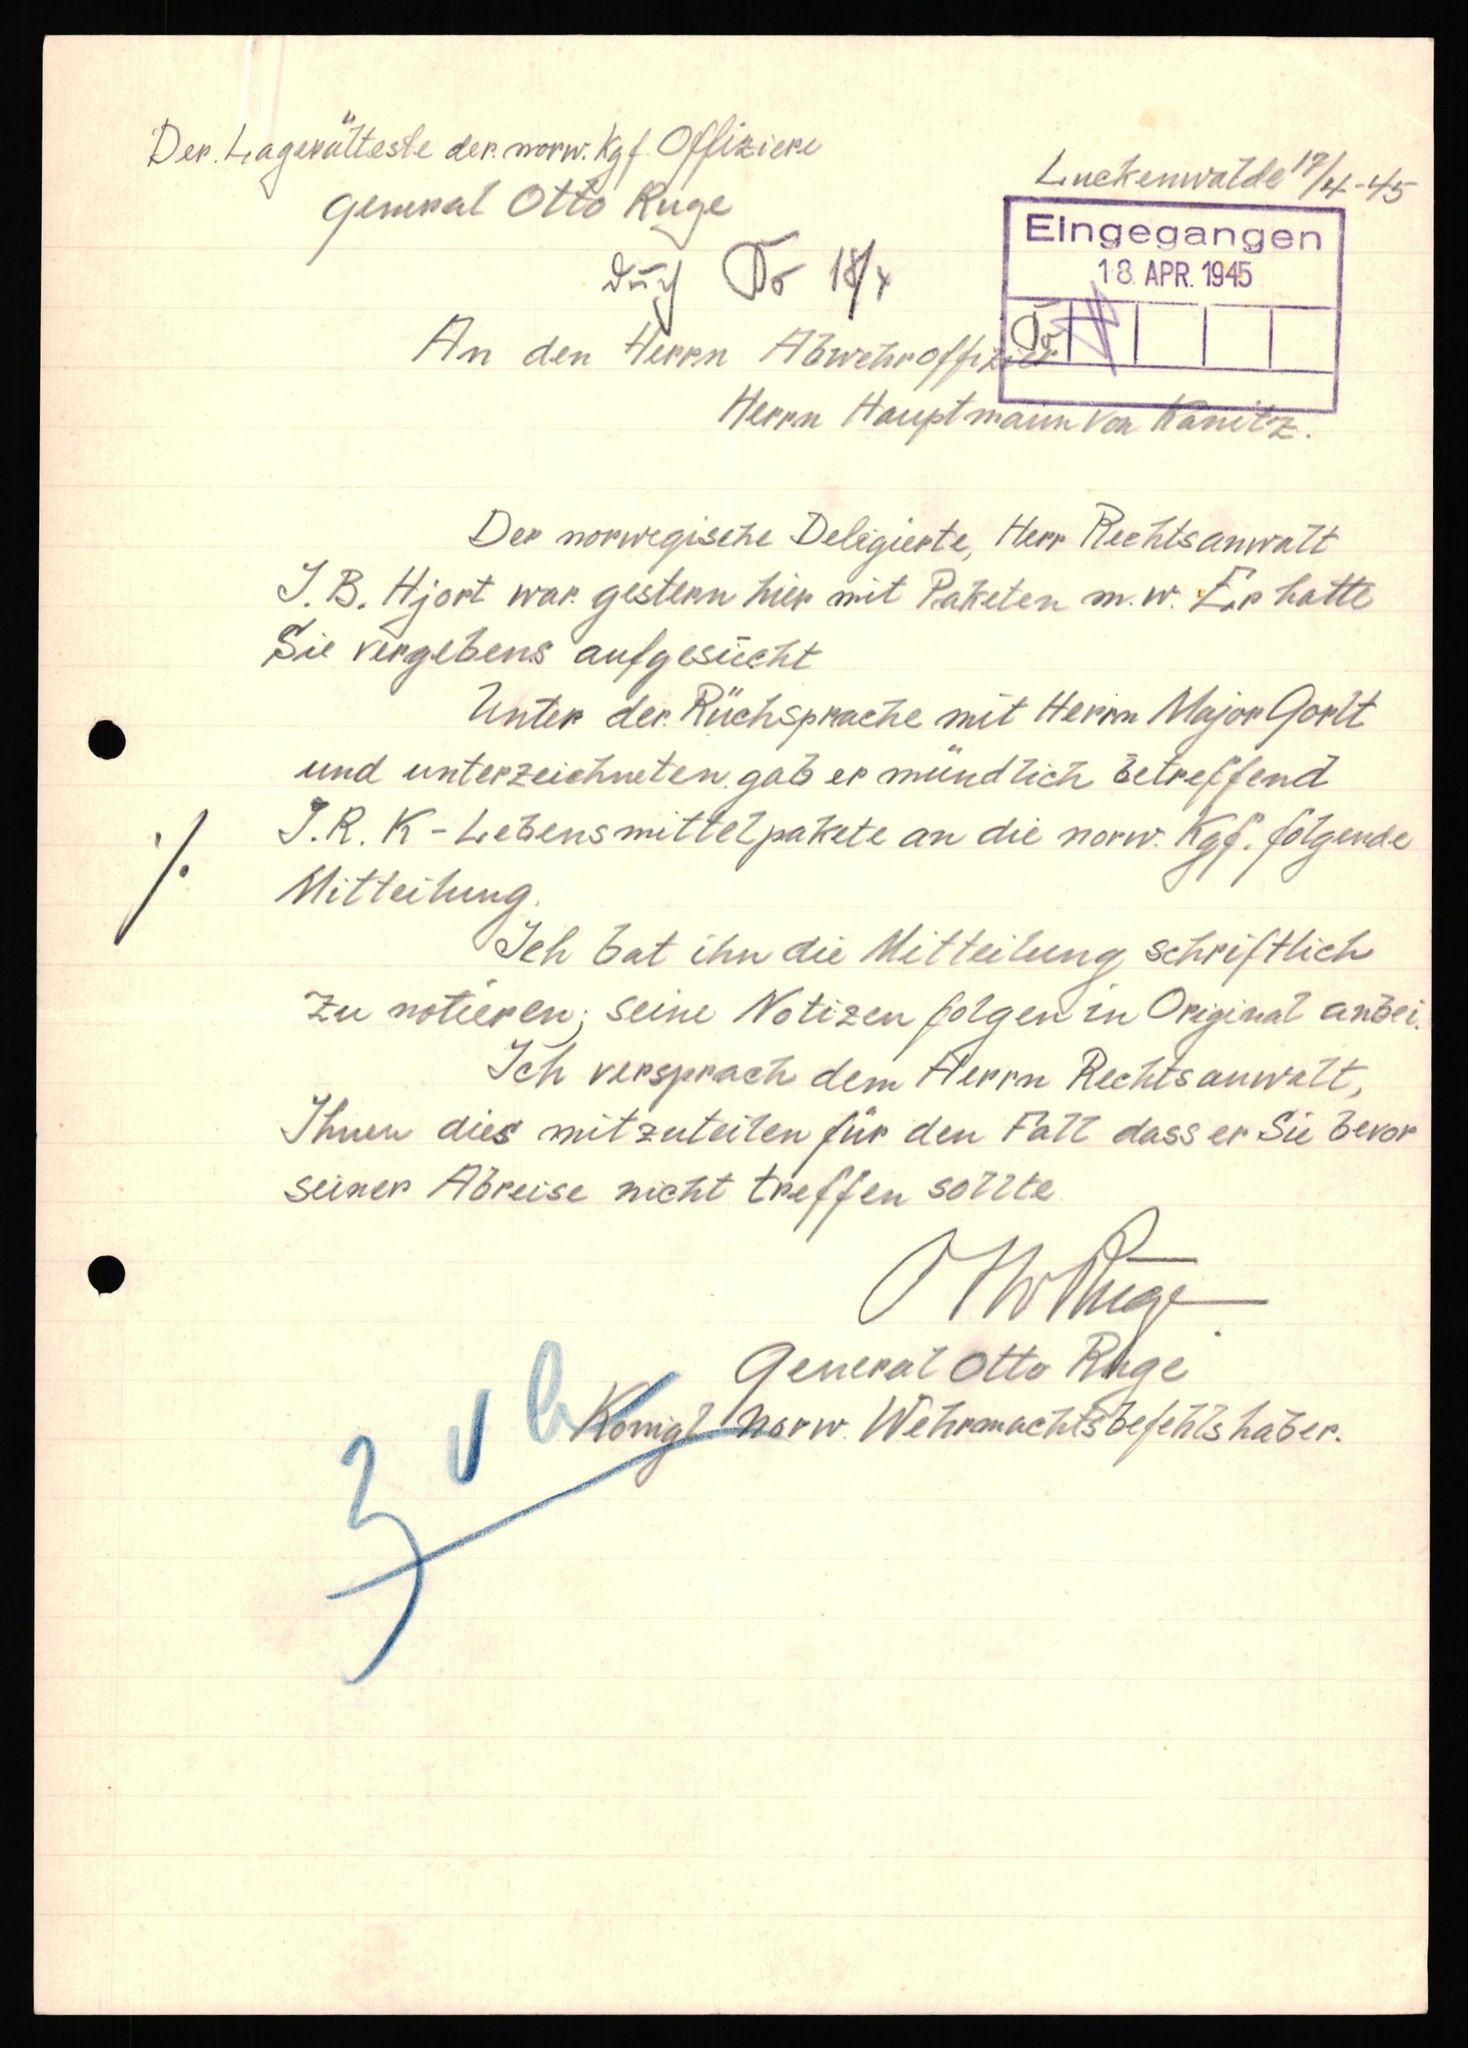 Der Lagerälteste der norw. Kgf. Offiziere
General Otto Ruge
Luckenwalde 17/4-45
Eingegangen
18. APR. 1945
Do 18/4
Do
An den Herrn Abwehroffizier
Herrn Hauptmann von Kanitz.
Der norwegische Deligierte, Herr Rechtsanwalt
J. B. Hjort war gestern hier mit Paketen m.w. Er hatte
Sie vergebens aufgesücht
Unter der Rüchsprache mit Herrn Major Gorlt
und unterzeichneten gab er mündlich betreffend
I.R.K-Lebensmittelpakete an die norw. Kgf. folgende
Mitteilung.
Ich bat ihn die Mitteilung schriftlich
zu notieren; seine Notizen folgen in Original anbei.
Ich versprach dem Herrn Rechtsanwalt,
Ihnen dies mitzuteilen für den Fall dass er Sie bevor
seiner Abreise nicht treffen sollte
Otto Ruge
General Otto Ruge
Königl norw. Wehrmachtsbefehlshaber.